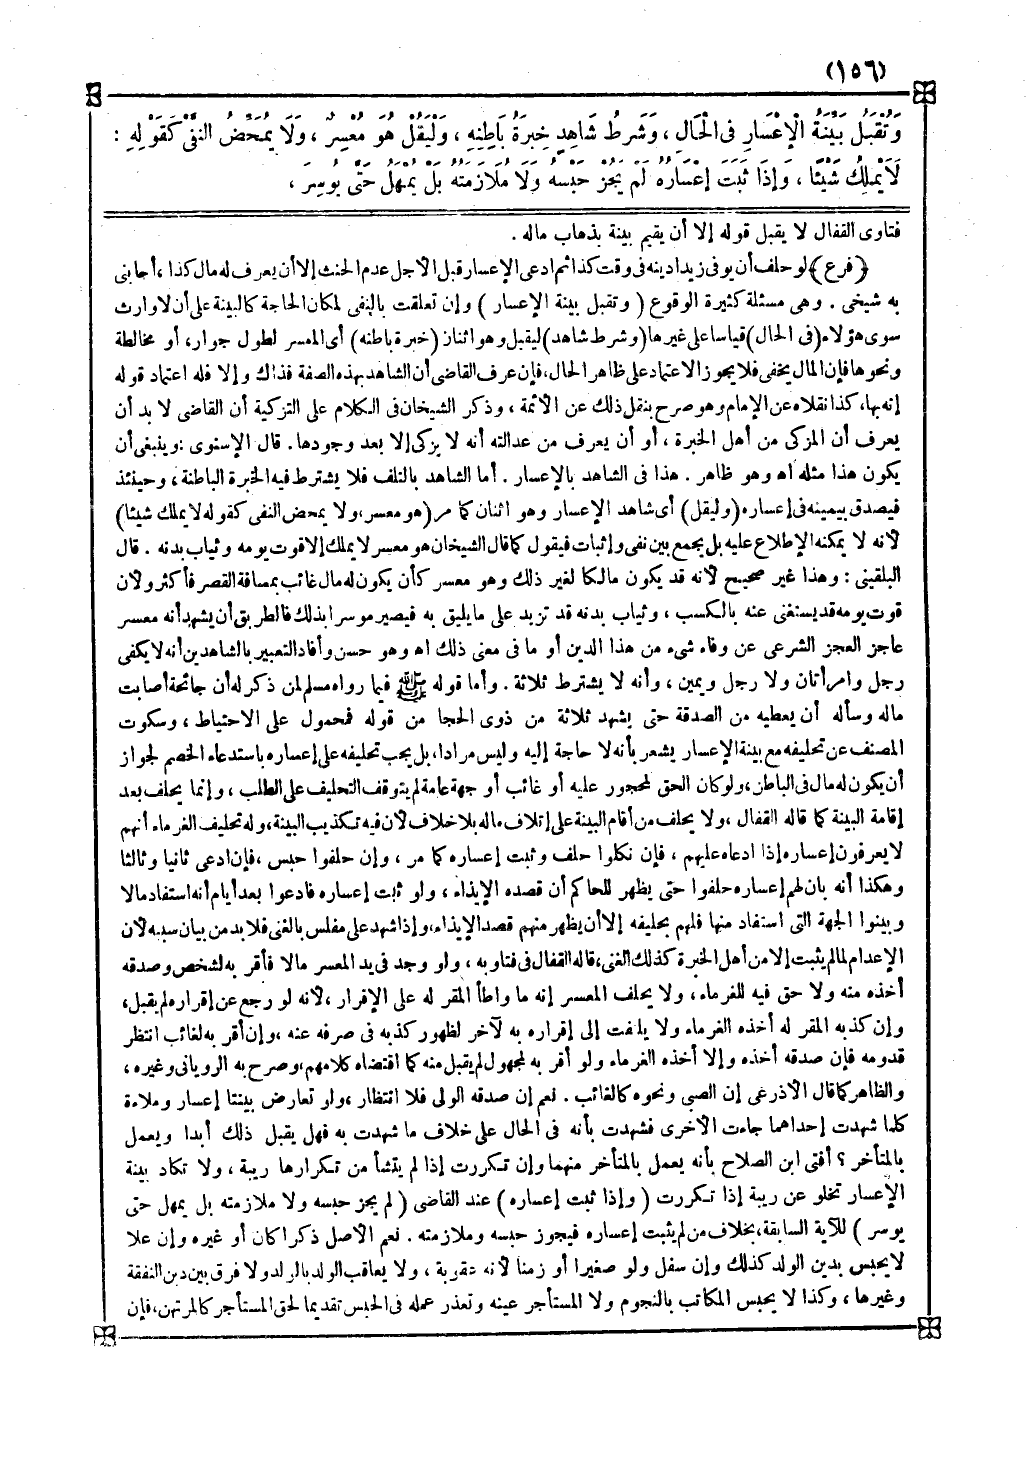 (١٥٦)
وَتُقْبَلُ بَيِّنَةُ الْإِعْسَارِ فِى الْحَالِ ، وَشَرْطُ شَاهِدِهِ خِبْرَةُ بَاطِنِهِ ، وَلْيَقُلْ هُوَ مُعْسِرٌ ، وَلَا يُمَحِّضُ النَّفْىَ كَقَوْلِهِ :
لَا يَمْلِكُ شَيْئًا ، وَإِذَا ثَبَتَ إِعْسَارُهُ لَمْ يَجُزْ حَبْسُهُ وَلَا مُلَازَمَتُهُ بَلْ يُمْهَلُ حَتَّى يُوسِرَ ،
فتاوى القفال لا يقبل قوله إلا أن يقيم بينة بذهاب ماله .
(فرع) لو حلف أن يوفى زيدا دينه فى وقت كذا ثم ادعى الإعسار قبل الأجل عدم الحنث إلا أن يعرف له مال كذا ، أجابنى
به شيخى . وهى مسئلة كثيرة الوقوع (وتقبل بينة الإعسار) وإن تعلقت بالنفى لمكان الحاجة كالبينة على أن لا وارث
سوى هؤلاء (فى الحال) قياسا على غيرها (وشرط شاهد) ليقبل وهو اثنان (خبرة باطنه) أى المعسر لطول جوار، أو مخالطة
ونحوها فإن المال يخفى فلا يجوز الاعتماد على ظاهر الحال، فإن عرف القاضى أن الشاهد بهذه الصفة فذاك وإلا فله اعتماد قوله
إنه بها، كذا نقلاه عن الإمام وهو صرح بنقل ذلك عن الأئمة ، وذكر الشيخان فى الكلام على التزكية أن القاضى لا بد أن
يعرف أن المزكى من أهل الخبرة ، أو أن يعرف من عدالته أنه لا يزكى إلا بعد وجودها. قال الإسنوى : وينبغى أن
يكون هذا مثله اه وهو ظاهر . هذا فى الشاهد بالإعسار . أما الشاهد بالتلف فلا يشترط فيه الخبرة الباطنة ، وحينئذ
فيصدق بيمينه فى إعساره (وليقل) أى شاهد الإعسار وهو اثنان كما مر (هو معسر، ولا يمحض النفى كقوله لا يملك شيئا)
لأنه لا يمكنه الإطلاع عليه بل يجمع بين نفى وإثبات فيقول كما قال الشيخان هو معسر لا يملك إلا قوت يومه وثياب بدنه . قال
البلقينى : وهذا غير صحيح لأنه قد يكون مالكا لغير ذلك وهو معسر كأن يكون له مال غائب بمسافة القصر فأكثر ولأن
قوت يومه قد يستغنى عنه بالكسب ، وثياب بدنه قد تزيد على ما يليق به فيصير موسرا بذلك فالطريق أن يشهد أنه معسر
عاجز العجز الشرعى عن وفاء شىء من هذا الدين أو ما فى معنى ذلك اه وهو حسن وأفاد التعبير بالشاهدين أنه لا يكفى
رجل وامرأتان ولا رجل ويمين ، وأنه لا يشترط ثلاثة . وأما قوله ﷺ فيما رواه مسلم لمن ذكر له أن جائحة أصابت
ماله وسأله أن يعطيه من الصدقة حتى يشهد ثلاثة من ذوى الحجا من قومه فمحمول على الاحتياط ، وسكوت
المصنف عن تحليفه مع بينة الإعسار يشعر بأنه لا حاجة إليه وليس مرادا، بل يجب تحليفه على إعساره باستدعاء الخصم لجواز
أن يكون له مال فى الباطن، ولو كان الحق لمحجور عليه أو غائب أو جهة عامة لم يتوقف التحليف على الطلب ، وإنما يحلف بعد
إقامة البينة كما قاله القفال ، ولا يحلف من أقام البينة على إتلاف ماله بلا خلاف لأن فيه تكذيب البينة، وله تحليف الغرماء أنهم
لا يعرفون إعساره إذا ادعاه عليهم ، فإن نكلوا حلف وثبت إعساره كما مر ، وإن حلفوا حبس ، فإن ادعى ثانيا وثالثا
وهكذا أنه بان لهم إعساره حلفوا حتى يظهر للحاكم أن قصده الإيذاء ، ولو ثبت إعساره فادعوا بعد أيام أنه استفاد مالا
وبينوا الجهة التى استفاد منها فلهم تحليفه إلا أن يظهر منهم قصد الإيذاء، وإذا شهد على مفلس بالغنى فلا بد من بيان سببه لأن
الإعدام لما لم يثبت إلا من أهل الخبرة كذلك الغنى، قاله القفال فى فتاويه ، ولو وجد فى يد المعسر مالا فأقر به لشخص وصدقه
أخذه منه ولا حق فيه للغرماء، ولا يحلف المعسر إنه ما واطأ المقر له على الإقرار ، لأنه لو رجع عن إقراره لم يقبل،
وإن كذبه المقر له أخذه الغرماء ولا يلتفت إلى إقراره به لآخر لظهور كذبه فى صرفه عنه ، وإن أقر به لغائب انتظر
قدومه فإن صدقه أخذه وإلا أخذه الغرماء ولو أقر به لمجهول لم يقبل منه كما اقتضاه كلامهم، وصرح به الرويانى وغيره ،
والظاهر كما قال الأذرعى إن الصبى ونحوه كالغائب . نعم إن صدقه الولى فلا انتظار ، ولو تعارض بينتا إعسار وملاءة
كلما شهدت إحداهما جاءت الأخرى فشهدت بأنه فى الحال على خلاف ما شهدت به فهل يقبل ذلك أبدا ويعمل
بالمتأخر ؟ أفتى ابن الصلاح بأنه يعمل بالمتأخر منهما وإن تكررت إذا لم ينشأ من تكرارها ريبة ، ولا تكاد بينة
الإعسار تخلو عن ريبة إذا تكررت (وإذا ثبت إعساره) عند القاضى (لم يجز حبسه ولا ملازمته بل يمهل حتى
يوسر) للآية السابقة، بخلاف من لم يثبت إعساره فيجوز حبسه وملازمته . نعم الأصل ذكرا كان أو غيره وإن علا
لا يحبس بدين الولد كذلك وإن سفل ولو صغيرا أو زمنا لأنه عقوبة ، ولا يعاقب الوالد بالولد ولا فرق بين دين النفقة
وغيرها ، وكذا لا يحبس المكاتب بالنجوم ولا المستأجر عينه وتعذر عمله فى الحبس تقديما لحق المستأجر كالمرتهن، فإن